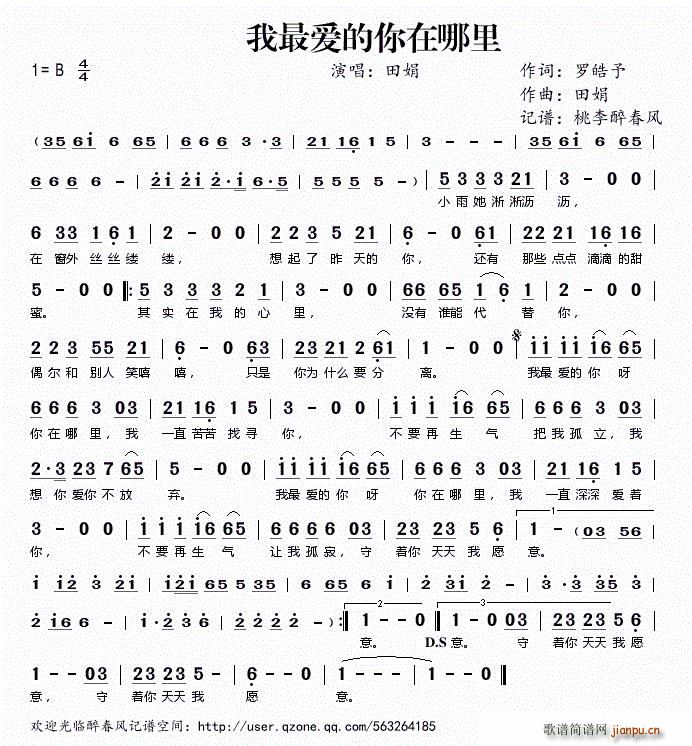 我最爱的你在哪里
1= B 4/4 演唱：田娟 作词：罗皓予
作曲：田娟
记谱：桃李醉春风
( 35 6i 6 65 | 6 6 6 3 · 3 | 21 12 16 5 | 3 - - - | 35 6i 6 65 |
6 6 6 6 - | 2i 2i 2·i 6·5 | 5 5 5 5 - ) | 5 3 3 3 21 | 3 - 0 0 |
小雨她淅淅沥 沥，
6 33 1 6 1 | 2 - 0 0 | 2 2 3 5 21 | 6 - 0 61 | 22 21 16 12 |
在 窗外 丝丝缕 缕， 想起了昨天的 你， 还有 那些 点点 滴滴 的甜
5 - 0 0 |: 5 3 3 3 2 1 | 3 - 0 0 | 66 65 1 6 | 2 - 0 0 |
蜜。 其实在我的心 里， 没有 谁能 代 替 你，
2 2 3 55 21 | 6 - 0 63 | 23 21 2 61 | 1 - 0 0 | ii ii i6 65 |
偶尔和 别人 笑嘻 嘻， 只是 你为 什么 要 分 离。 我最 爱的 你 呀
6 6 6 3 03 | 21 16 1 5 | 3 - 0 0 | i i i i6 65 | 6 6 6 3 03 |
你在哪里，我 一直 苦苦 找寻 你， 不要再生 气 把我孤立，我
2·3 23 7 65 | 5 - 0 0 | ii ii i6 65 | 6 6 6 3 03 | 21 16 1 5 |
想 你 爱你 不 放 弃。 我最 爱的 你 呀 你在哪里，我 一直 深深 爱着
3 - 0 0 | i i i i6 65 | 6 6 6 6 03 | 23 23 5 6 | 1 - (03 56 |
你， 不要再生 气 让我孤寂，守 着你 天天 我愿 意。
i i2 3 2i | i2i 65 535 | 6 6 5 6 - | 2 3i 2 - | 3·3 35 3 |
2 i6 6 - | i·2 3 6 | 2 2 2 2 - ) :| 1 - - 0 | 1 - 0 03 | 23 23 5 6 |
意。 D.S 意。 守 着你 天天 我愿
1 - - 03 | 23 23 5 - | 6 - - 0 | 1 - - - | 1 - - 0 ||
意， 守 着你 天天 我 愿 意。
欢迎光临醉春风记谱空间：http://user.qzone.qq.com/563264185
歌谱简谱网
jianpu.cn